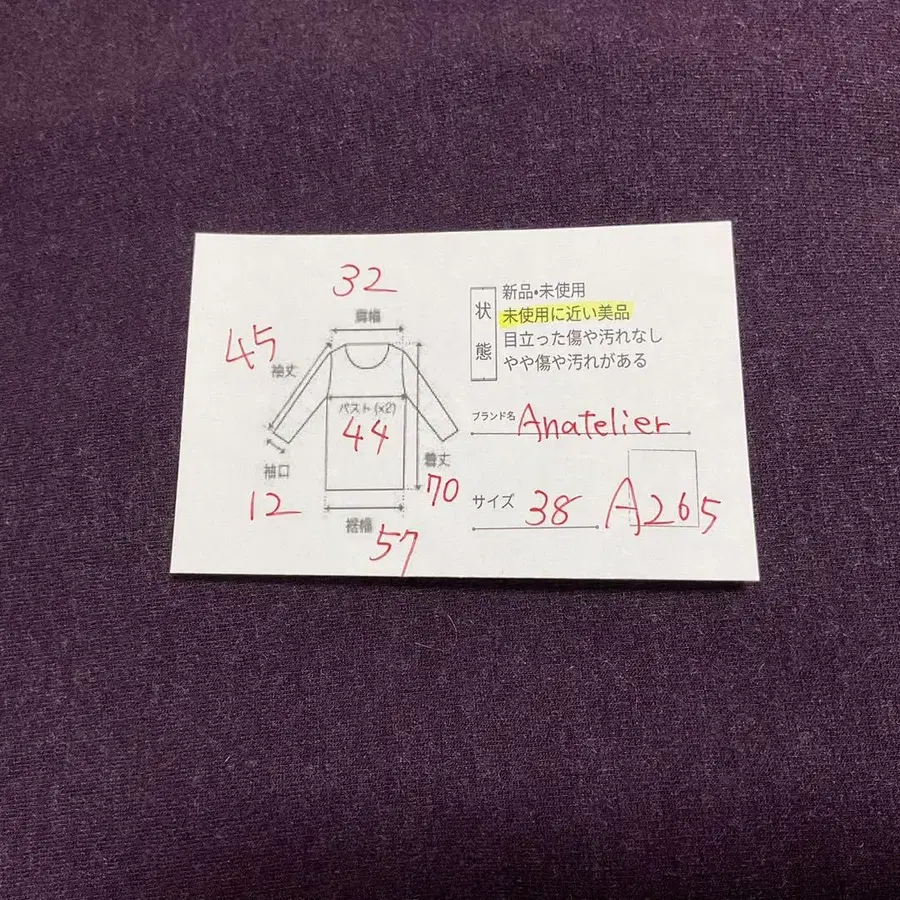 32
肩幅
45
袖丈
バスト(x2)
44
袖口
12
着丈
70
裾幅
57
状態
新品・未使用
未使用に近い美品
目立った傷や汚れなし
やや傷や汚れがある
ブランド名 Anatelier
サイズ 38 A265